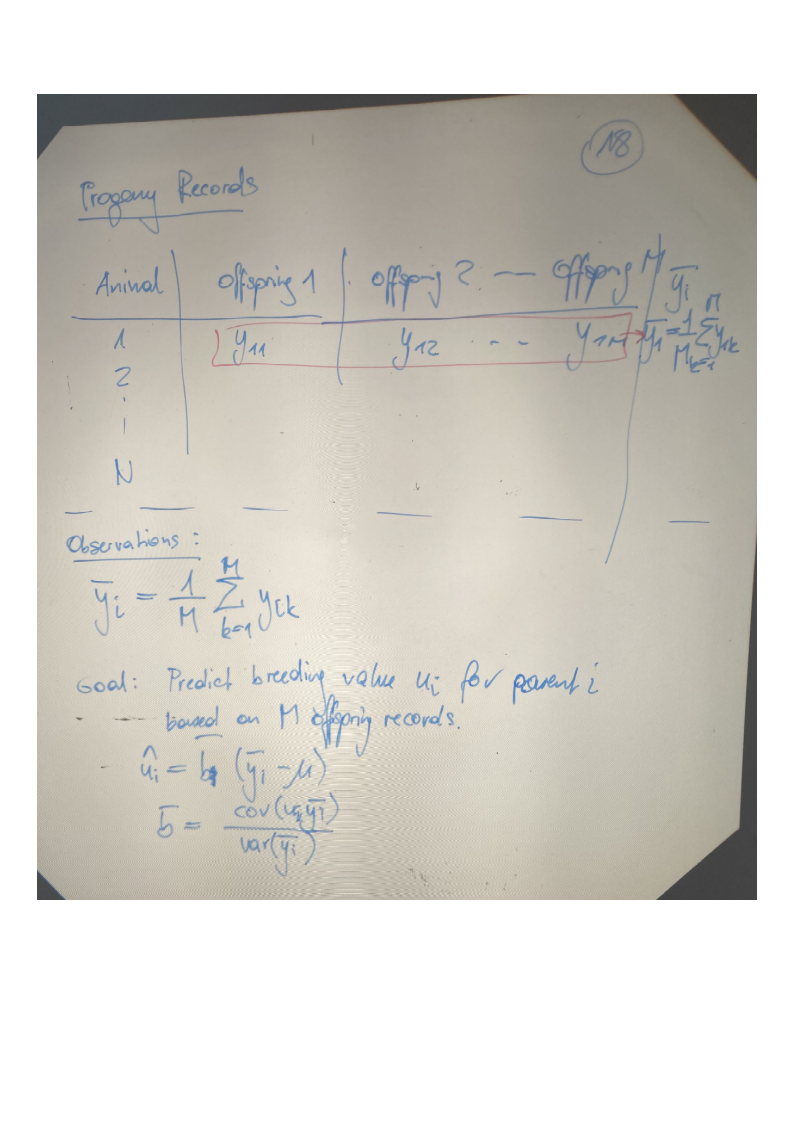 N8
Progeny Records
Animal offspring 1 offspring 2 — offspring M ȳi
1 y11 y12 - - y1M → ȳ1 = 1/M Σ_{k=1}^{M} y1k
2
i
N
Observations:
ȳi = 1/M Σ_{k=1}^{M} yik
Goal: Predict breeding value ui for parent i
based on M offspring records.
ûi = b̄ (ȳi - μ)
b̄ = cov(ui, ȳi) / var(ȳi)